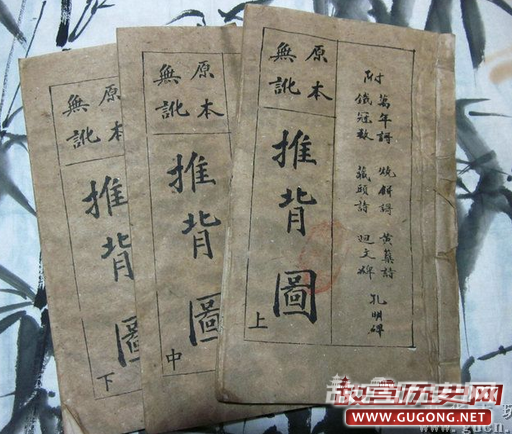 原本
無訛
推背圖
上
附
萬年謌 燒餅謌 黃蘗詩 孔明碑
鐵冠數 藏頭詩 迴文碑
原本
無訛
推背圖
中
原本
無訛
推背圖
下
故宫历史网
WWW.GUGONG.NET